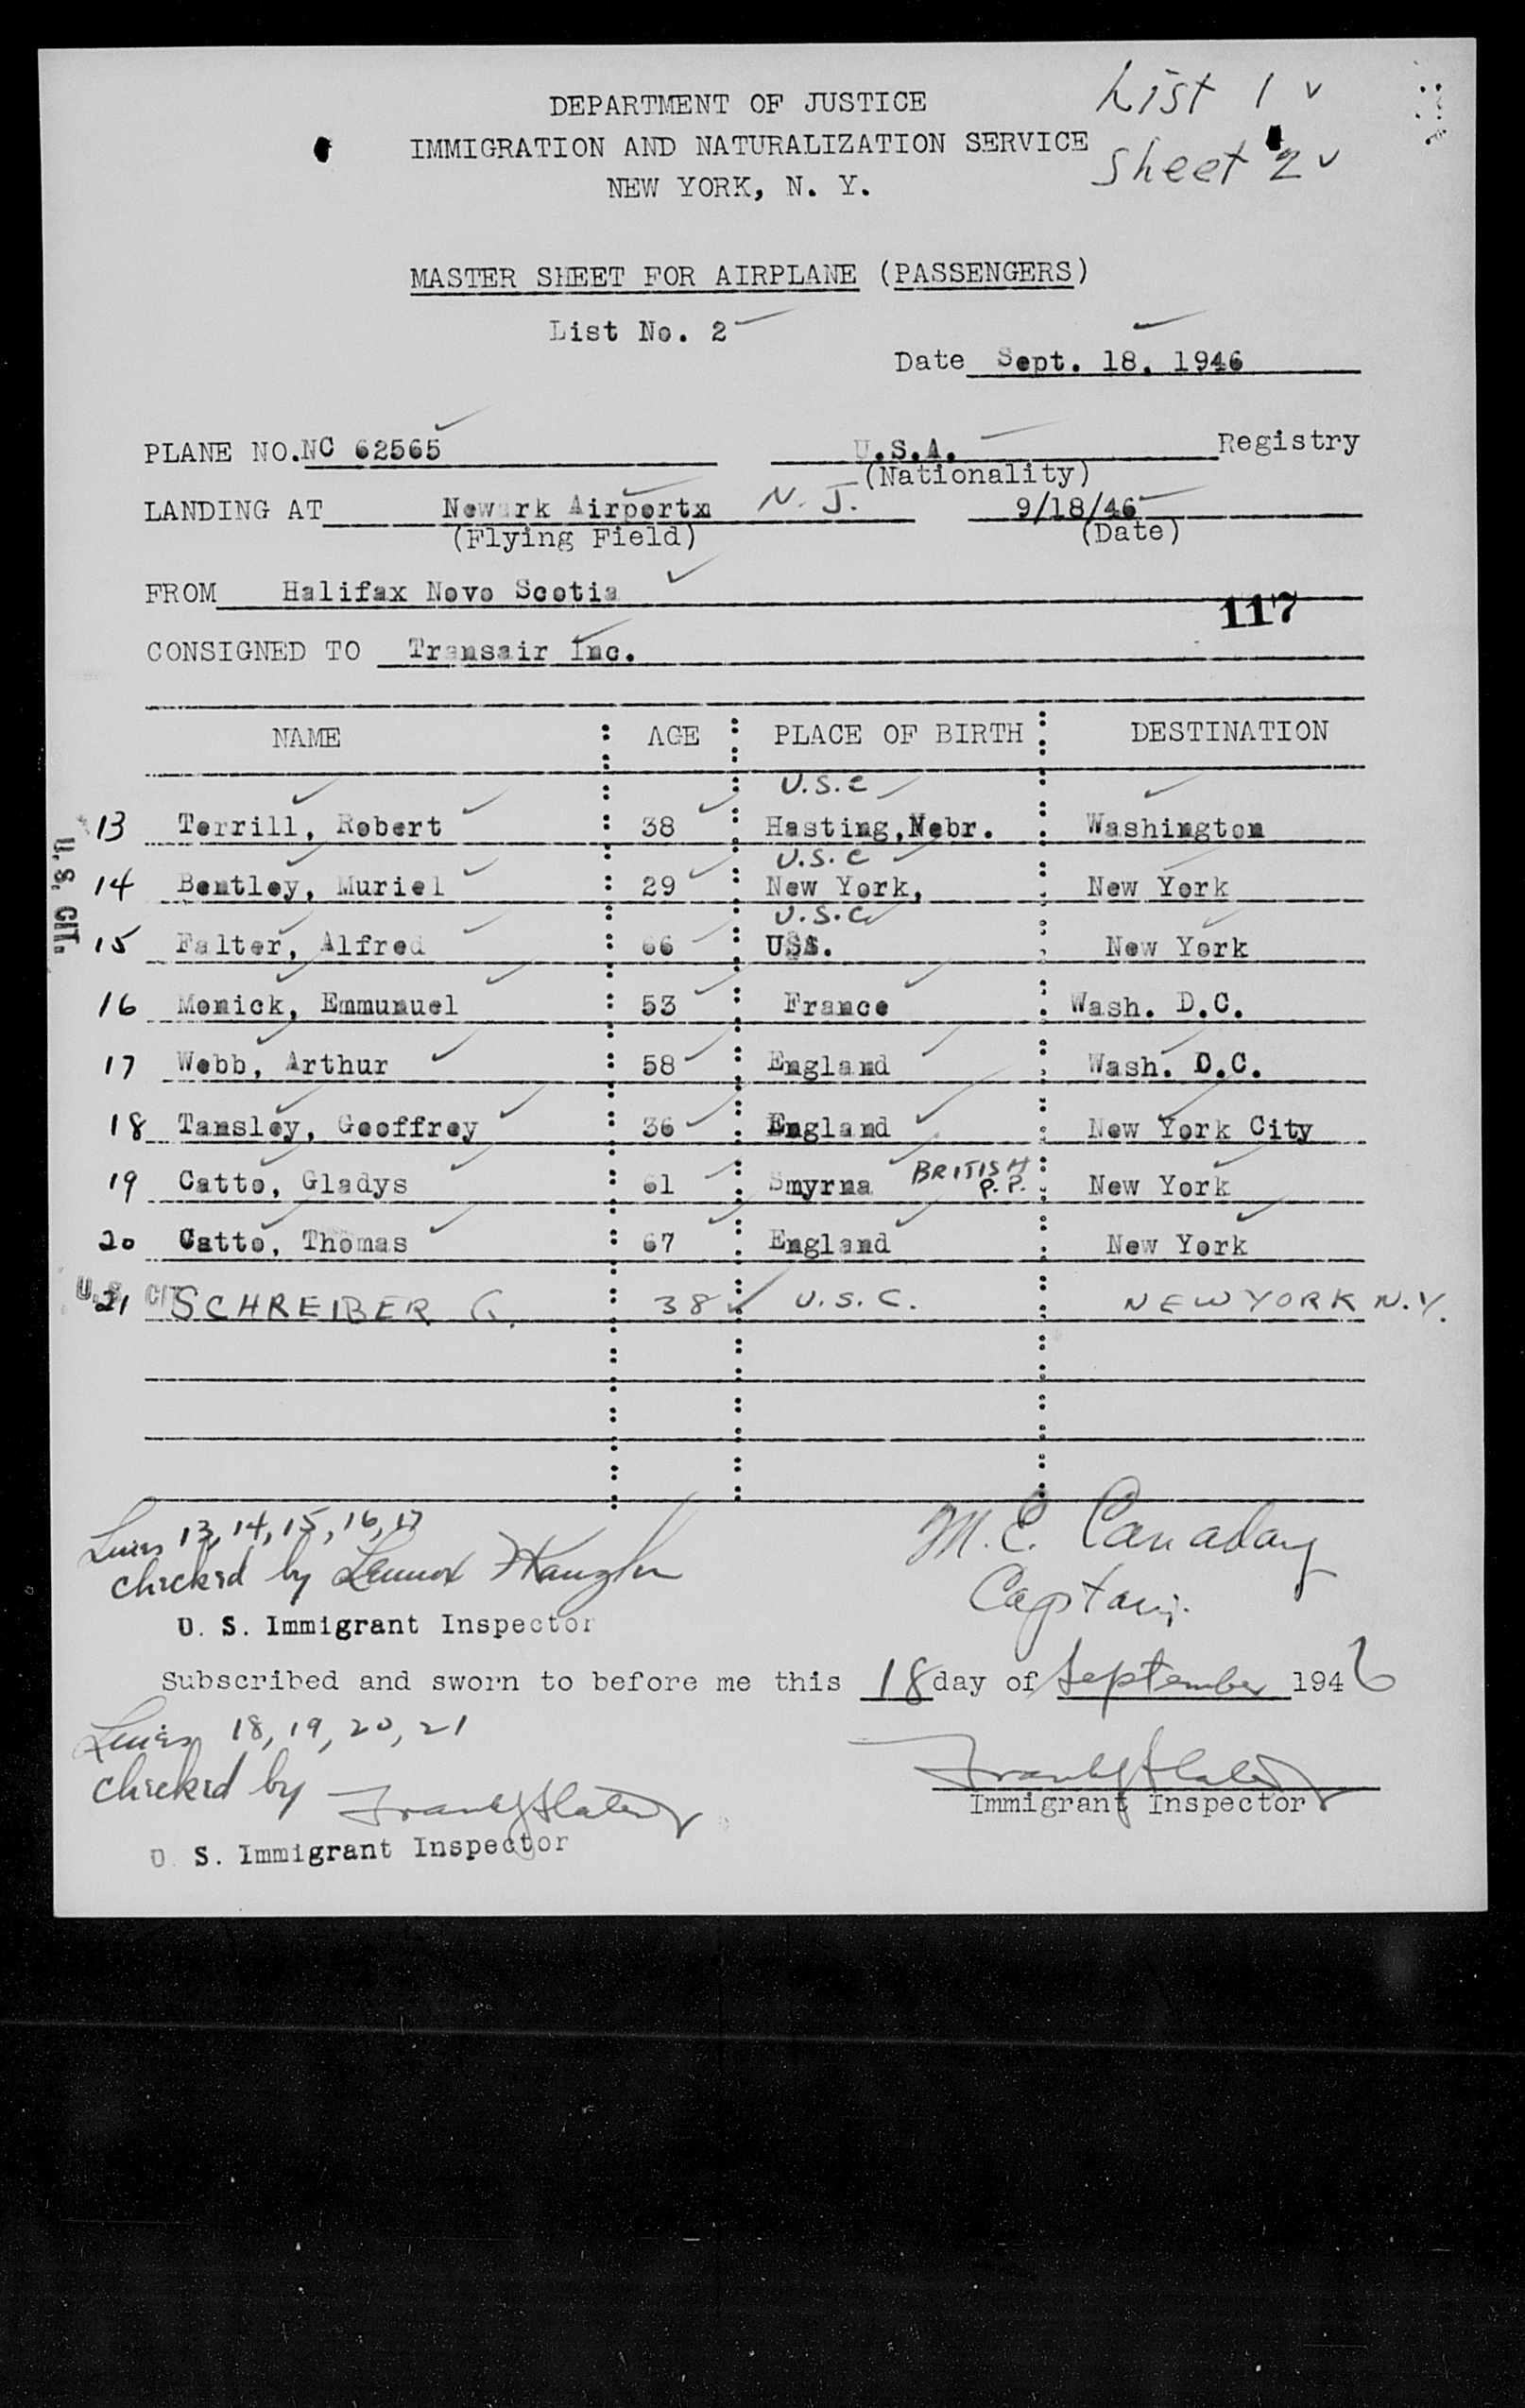 List 1
Sheet 2
DEPARTMENT OF JUSTICE
IMMIGRATION AND NATURALIZATION SERVICE
NEW YORK, N. Y.
MASTER SHEET FOR AIRPLANE (PASSENGERS)
List No. 2
Date Sept. 18. 1946
PLANE NO. NC 62565 U.S.A. Registry
(Nationality)
LANDING AT Newark Airportx N. J. 9/18/46
(Flying Field) (Date)
FROM Halifax Novo Scotia
117
CONSIGNED TO Transair Inc.
NAME AGE PLACE OF BIRTH DESTINATION
U.S.C
13 Terrill, Robert 38 Hasting, Nebr. Washington
U.S.C
U.S. CIT.
14 Bentley, Muriel 29 New York, New York
U.S.C
15 Falter, Alfred 66 USA. New York
16 Monick, Emmunuel 53 France Wash. D.C.
17 Webb, Arthur 58 England Wash. D.C.
18 Tansley, Geoffrey 36 England New York City
19 Catto, Gladys 61 Smyrna BRITISH P.P. New York
20 Catto, Thomas 67 England New York
U.S. CIT
21 SCHREIBER G. 38 U.S.C. NEW YORK N.Y.
Lines 13, 14, 15, 16, 17
checked by Lennox
M. E. Canaday
Captain.
U. S. Immigrant Inspector
Subscribed and sworn to before me this 18 day of September 1946
Lines 18, 19, 20, 21
checked by
Immigrant Inspector
U. S. Immigrant Inspector